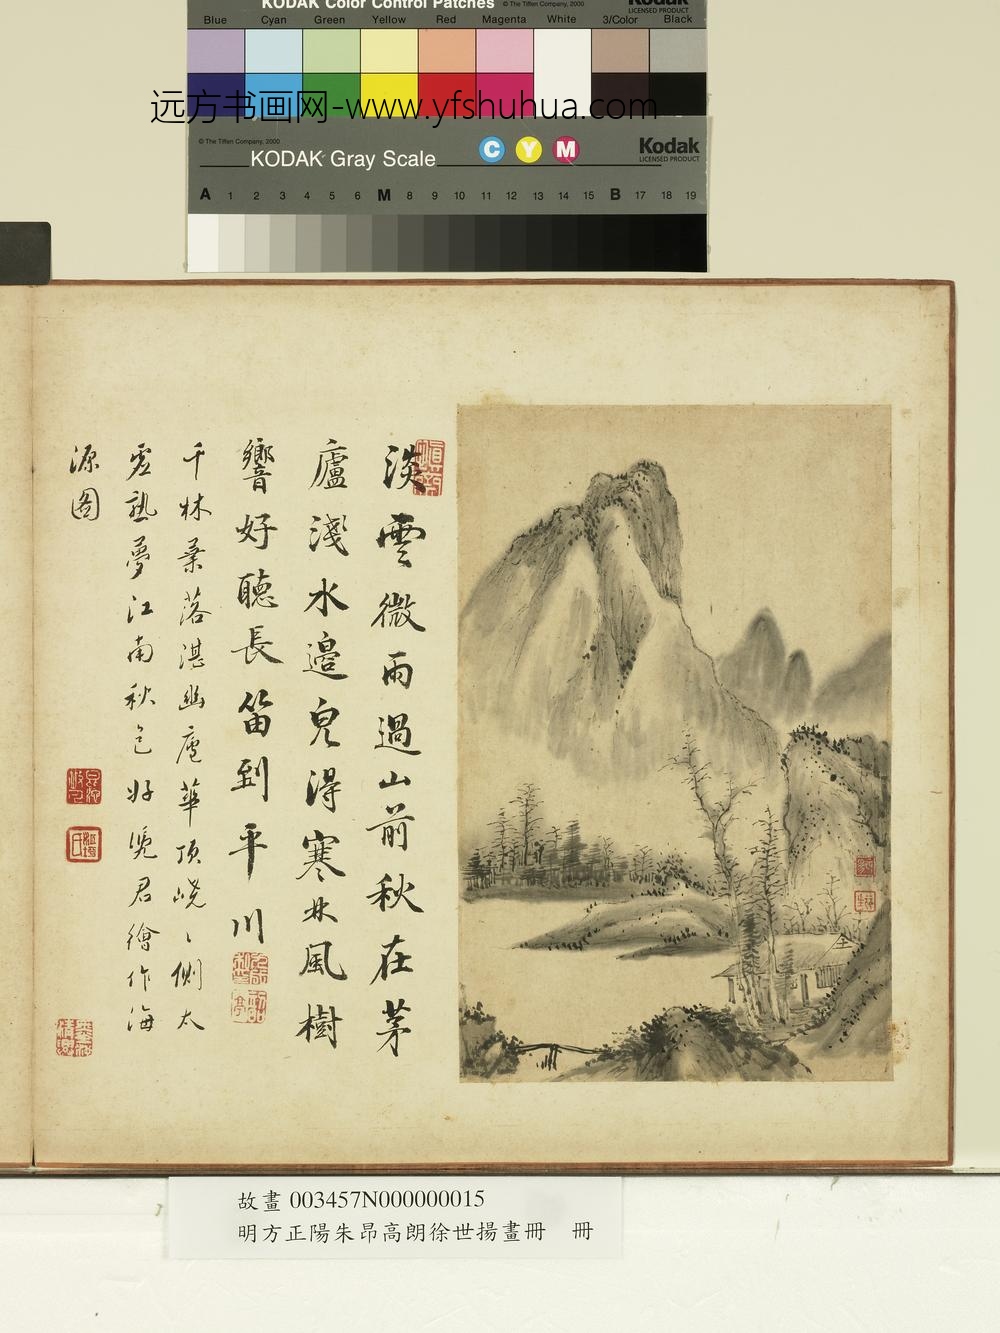 KODAK Color Control Patches © The Tiffen Company, 2000 Kodak
LICENSED PRODUCT
Blue Cyan Green Yellow Red Magenta White 3/Color Black
远方书画网-www.yfshuhua.com
© The Tiffen Company, 2000
KODAK Gray Scale C Y M Kodak
LICENSED PRODUCT
A 1 2 3 4 5 6 M 8 9 10 11 12 13 14 15 B 17 18 19
淡雲微雨過山前秋在茅
廬淺水邊兒得寒林風樹
響好聽長笛到平川
千林葉落湛幽廬華頂峣〻側太
虛熟夢江南秋色好
君繪作海
源图
故畫 003457N000000015
明方正陽朱昂高朗徐世揚畫冊 冊